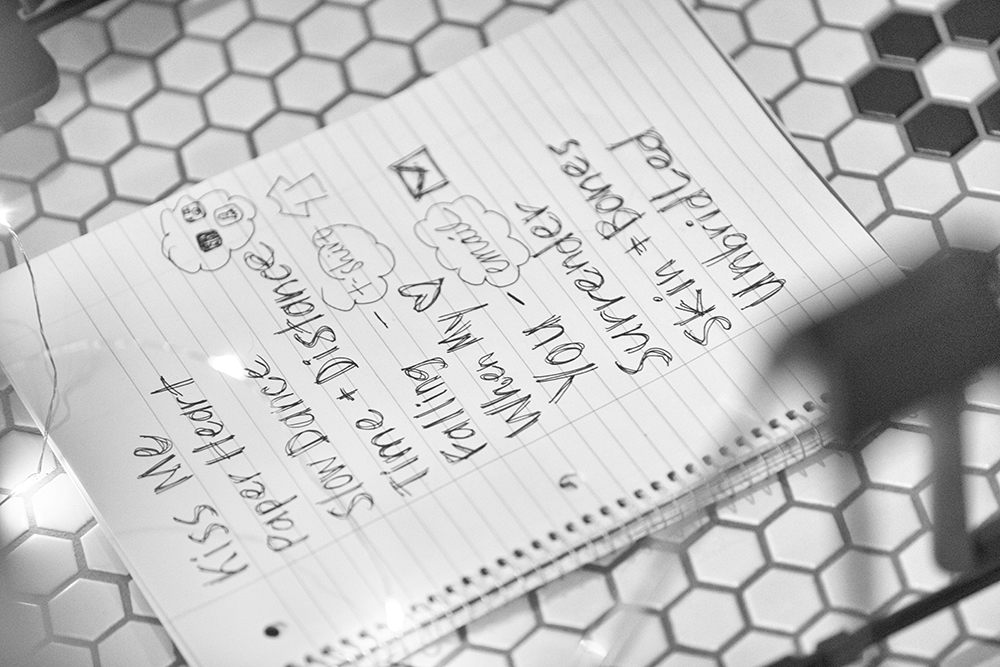 Kiss Me
Paper Heart
Slow Dance
Time + Distance
Falling - t-shirt
When My ♡
You - email
Surrender
Skin + Bones
Unbridled